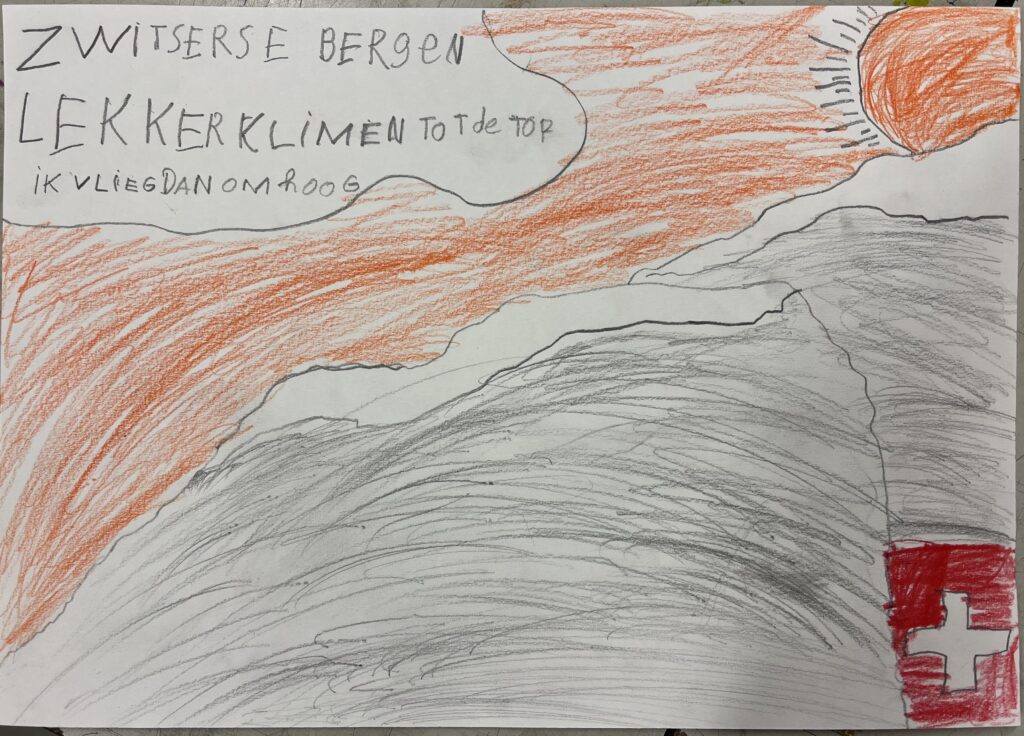 ZWITSERSE BERGEN
LEKKER KLIMEN TOT de TOP
iK VLIEG DAN OMhOOG